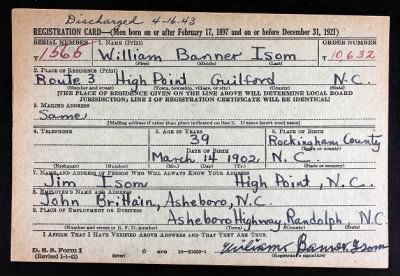 Discharged 4-16-43
REGISTRATION CARD—(Men born on or after February 17, 1897 and on or before December 31, 1921)
SERIAL NUMBER 1. NAME (Print) ORDER NUMBER
1566 William Banner Isom 10,632
(First) (Middle) (Last)
2. PLACE OF RESIDENCE (Print)
Route 3 High Point Guilford N.C.
(Number and street) (Town, township, village, or city) (County) (State)
[THE PLACE OF RESIDENCE GIVEN ON THE LINE ABOVE WILL DETERMINE LOCAL BOARD
JURISDICTION; LINE 2 OF REGISTRATION CERTIFICATE WILL BE IDENTICAL]
3. MAILING ADDRESS
Same
(Mailing address if other than place indicated on line 2. If same insert word same)
4. TELEPHONE 5. AGE IN YEARS 6. PLACE OF BIRTH
39 Rockingham County
DATE OF BIRTH (Town or county)
March 14 1902 N.C.
(Exchange) (Number) (Mo.) (Day) (Yr.) (State or country)
7. NAME AND ADDRESS OF PERSON WHO WILL ALWAYS KNOW YOUR ADDRESS
Jim Isom High Point, N.C.
8. EMPLOYER'S NAME AND ADDRESS
John Brittain, Asheboro, N.C.
9. PLACE OF EMPLOYMENT OR BUSINESS
Asheboro Highway, Randolph, N.C.
(Number and street or R. F. D. number) (Town) (County) (State)
I AFFIRM THAT I HAVE VERIFIED ABOVE ANSWERS AND THAT THEY ARE TRUE.
D. S. S. Form 1
(Revised 1-1-42) (over) 16—21630-1 William Banner Isom
(Registrant's signature)